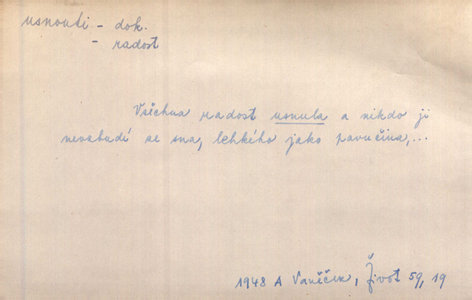 usnouti - dok.
- radost
Všechna radost usnula a nikdo ji
nevzbudí ze sna, lehkého jako pavučina,...
1948 A Vaněček, Život 59, 19